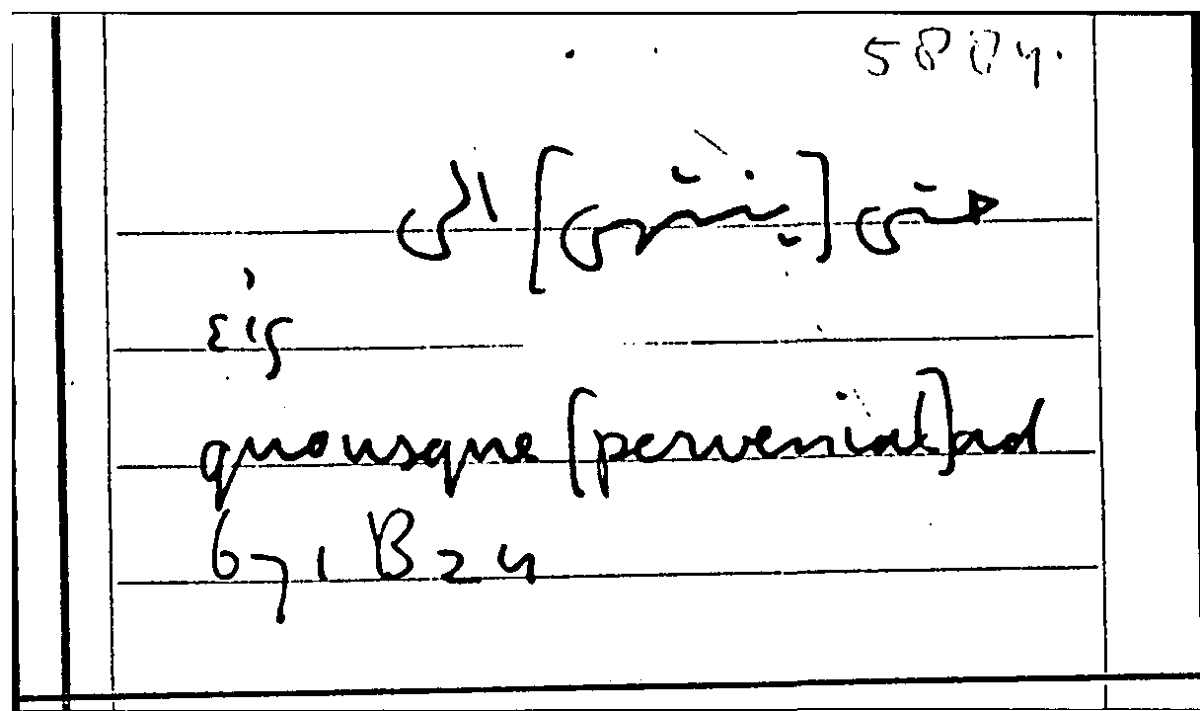 حتى [ينتهى] الى
εἰς
quousque [perveniat] ad
671 B 24